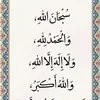 سُبْحَانَ اللهِ،
وَالْحَمْدُ لِلهِ،
وَلَا إِلَهَ إِلَّا اللهُ،
وَاللهُ أَكْبَرُ،